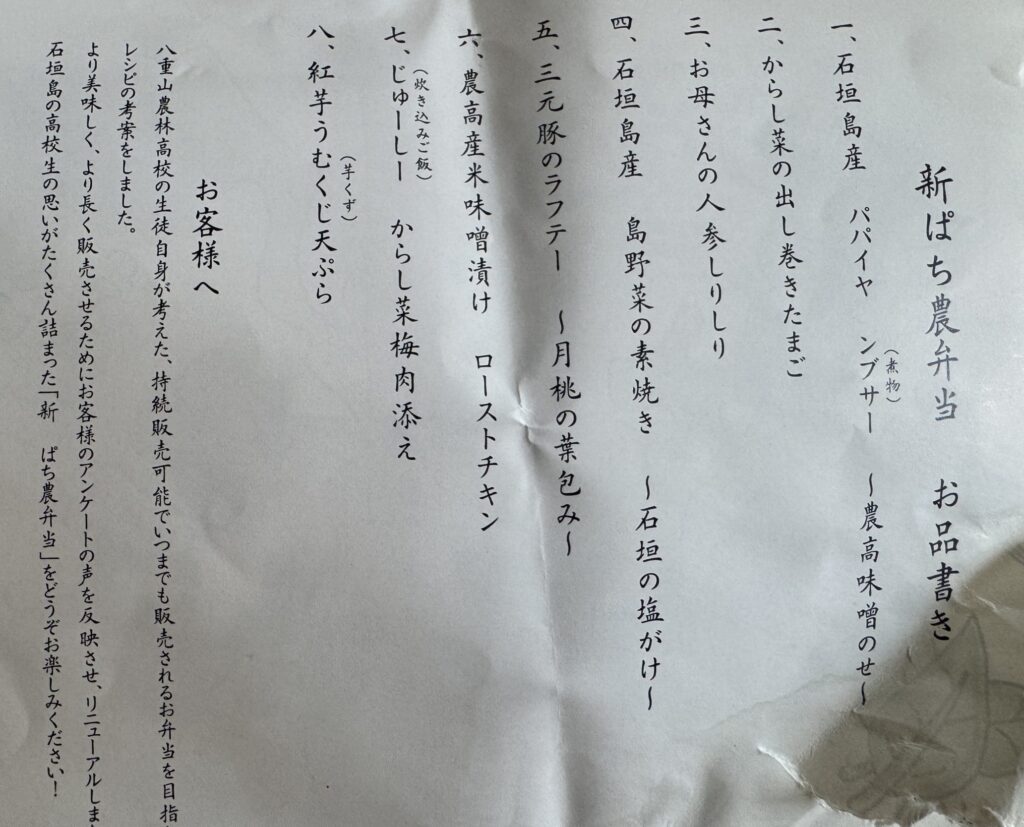 新ぱち農弁当 お品書き
一、石垣島産 パパイヤ ンブサー(煮物) ～農高味噌のせ～
二、からし菜の出し巻きたまご
三、お母さんの人参しりしり
四、石垣島産 島野菜の素焼き ～石垣の塩がけ～
五、三元豚のラフテー ～月桃の葉包み～
六、農高産米味噌漬け ローストチキン
七、じゅーしー(炊き込みご飯) からし菜梅肉添え
八、紅芋うむくじ(芋くず)天ぷら
お客様へ
八重山農林高校の生徒自身が考えた、持続販売可能でいつまでも販売されるお弁当を目指
レシピの考案をしました。
より美味しく、より長く販売させるためにお客様のアンケートの声を反映させ、リニューアルしま
石垣島の高校生の思いがたくさん詰まった「新 ぱち農弁当」をどうぞお楽しみください!